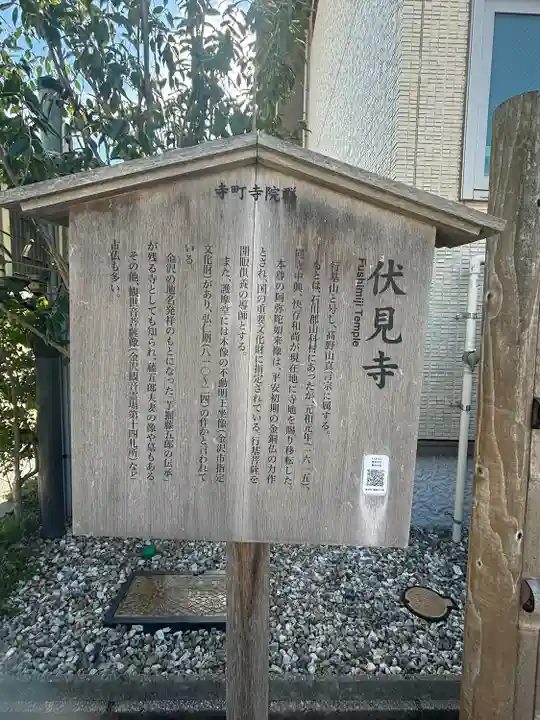 寺町寺院群
伏見寺
Fushimiji Temple
行基山と号し、高野山真言宗に属する。
もとは、石川郡山科村にあったが、元和元年(一六一五)、
同寺中興、快存和尚が現在地に寺地を賜り移転した。
本尊の阿弥陀如来像は、平安初期の金銅仏の力作
とされ、国の重要文化財に指定されている。行基菩薩を
開眼供養の導師とする。
また、護摩堂には木像の不動明王坐像(金沢市指定
文化財)があり、弘仁期(八一〇〜二四)の作かと言われて
いる。
金沢の地名発祥のもとになった「芋掘藤五郎の伝承」
が残る寺としても知られ、藤五郎夫妻の像や墓もある。
その他、救世音菩薩像(金沢観音霊場第十四札所)など
古仏も多い。